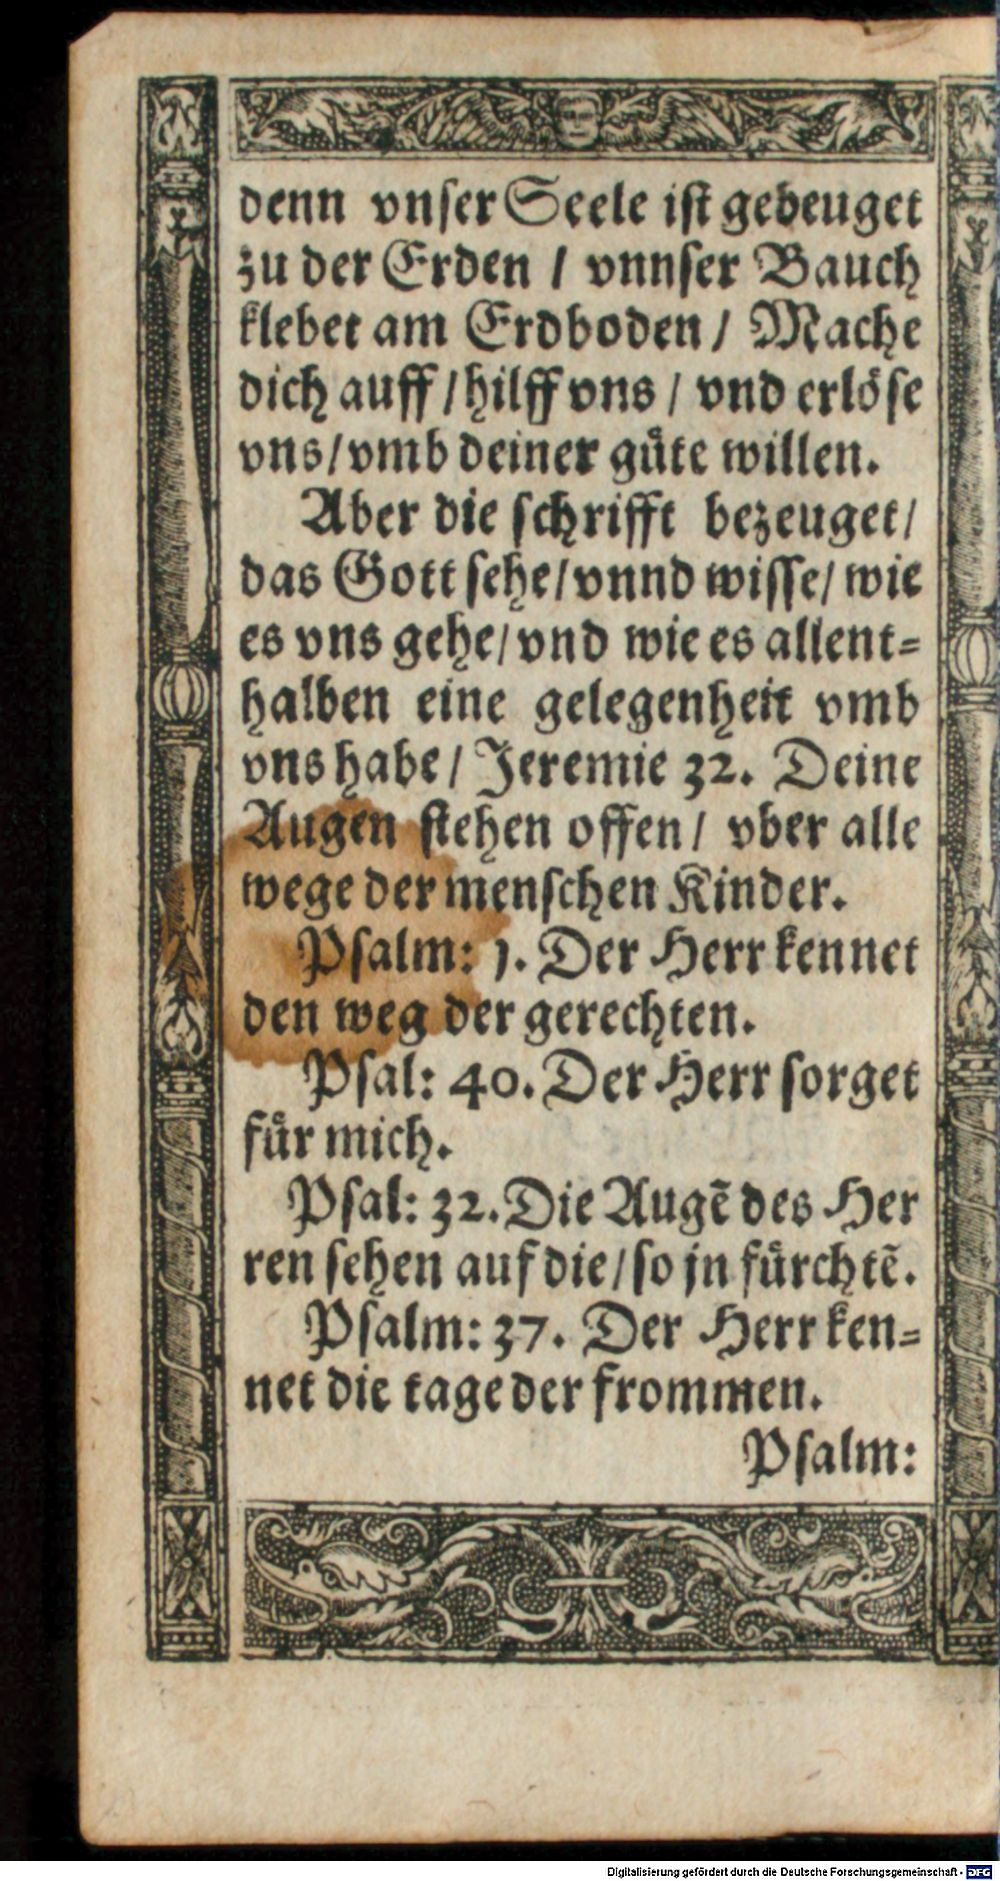 denn vnser Seele ist gebeuget
zu der Erden / vnnser Bauch
klebet am Erdboden / Mache
dich auff / hilff vns / vnd erlöse
vns / vmb deiner güte willen.
Aber die schrifft bezeuget /
das Gott sehe / vnnd wisse / wie
es vns gehe / vnd wie es allent=
halben eine gelegenheit vmb
vns habe / Jeremie 32. Deine
Augen stehen offen / vber alle
wege der menschen Kinder.
Psalm: 1. Der Herr kennet
den weg der gerechten.
Psal: 40. Der Herr sorget
für mich.
Psal: 32. Die Augẽ des Her
ren sehen auf die / so jn fürchtẽ.
Psalm: 37. Der Herr ken=
net die tage der frommen.
Psalm:
Digitalisierung gefördert durch die Deutsche Forschungsgemeinschaft - DFG